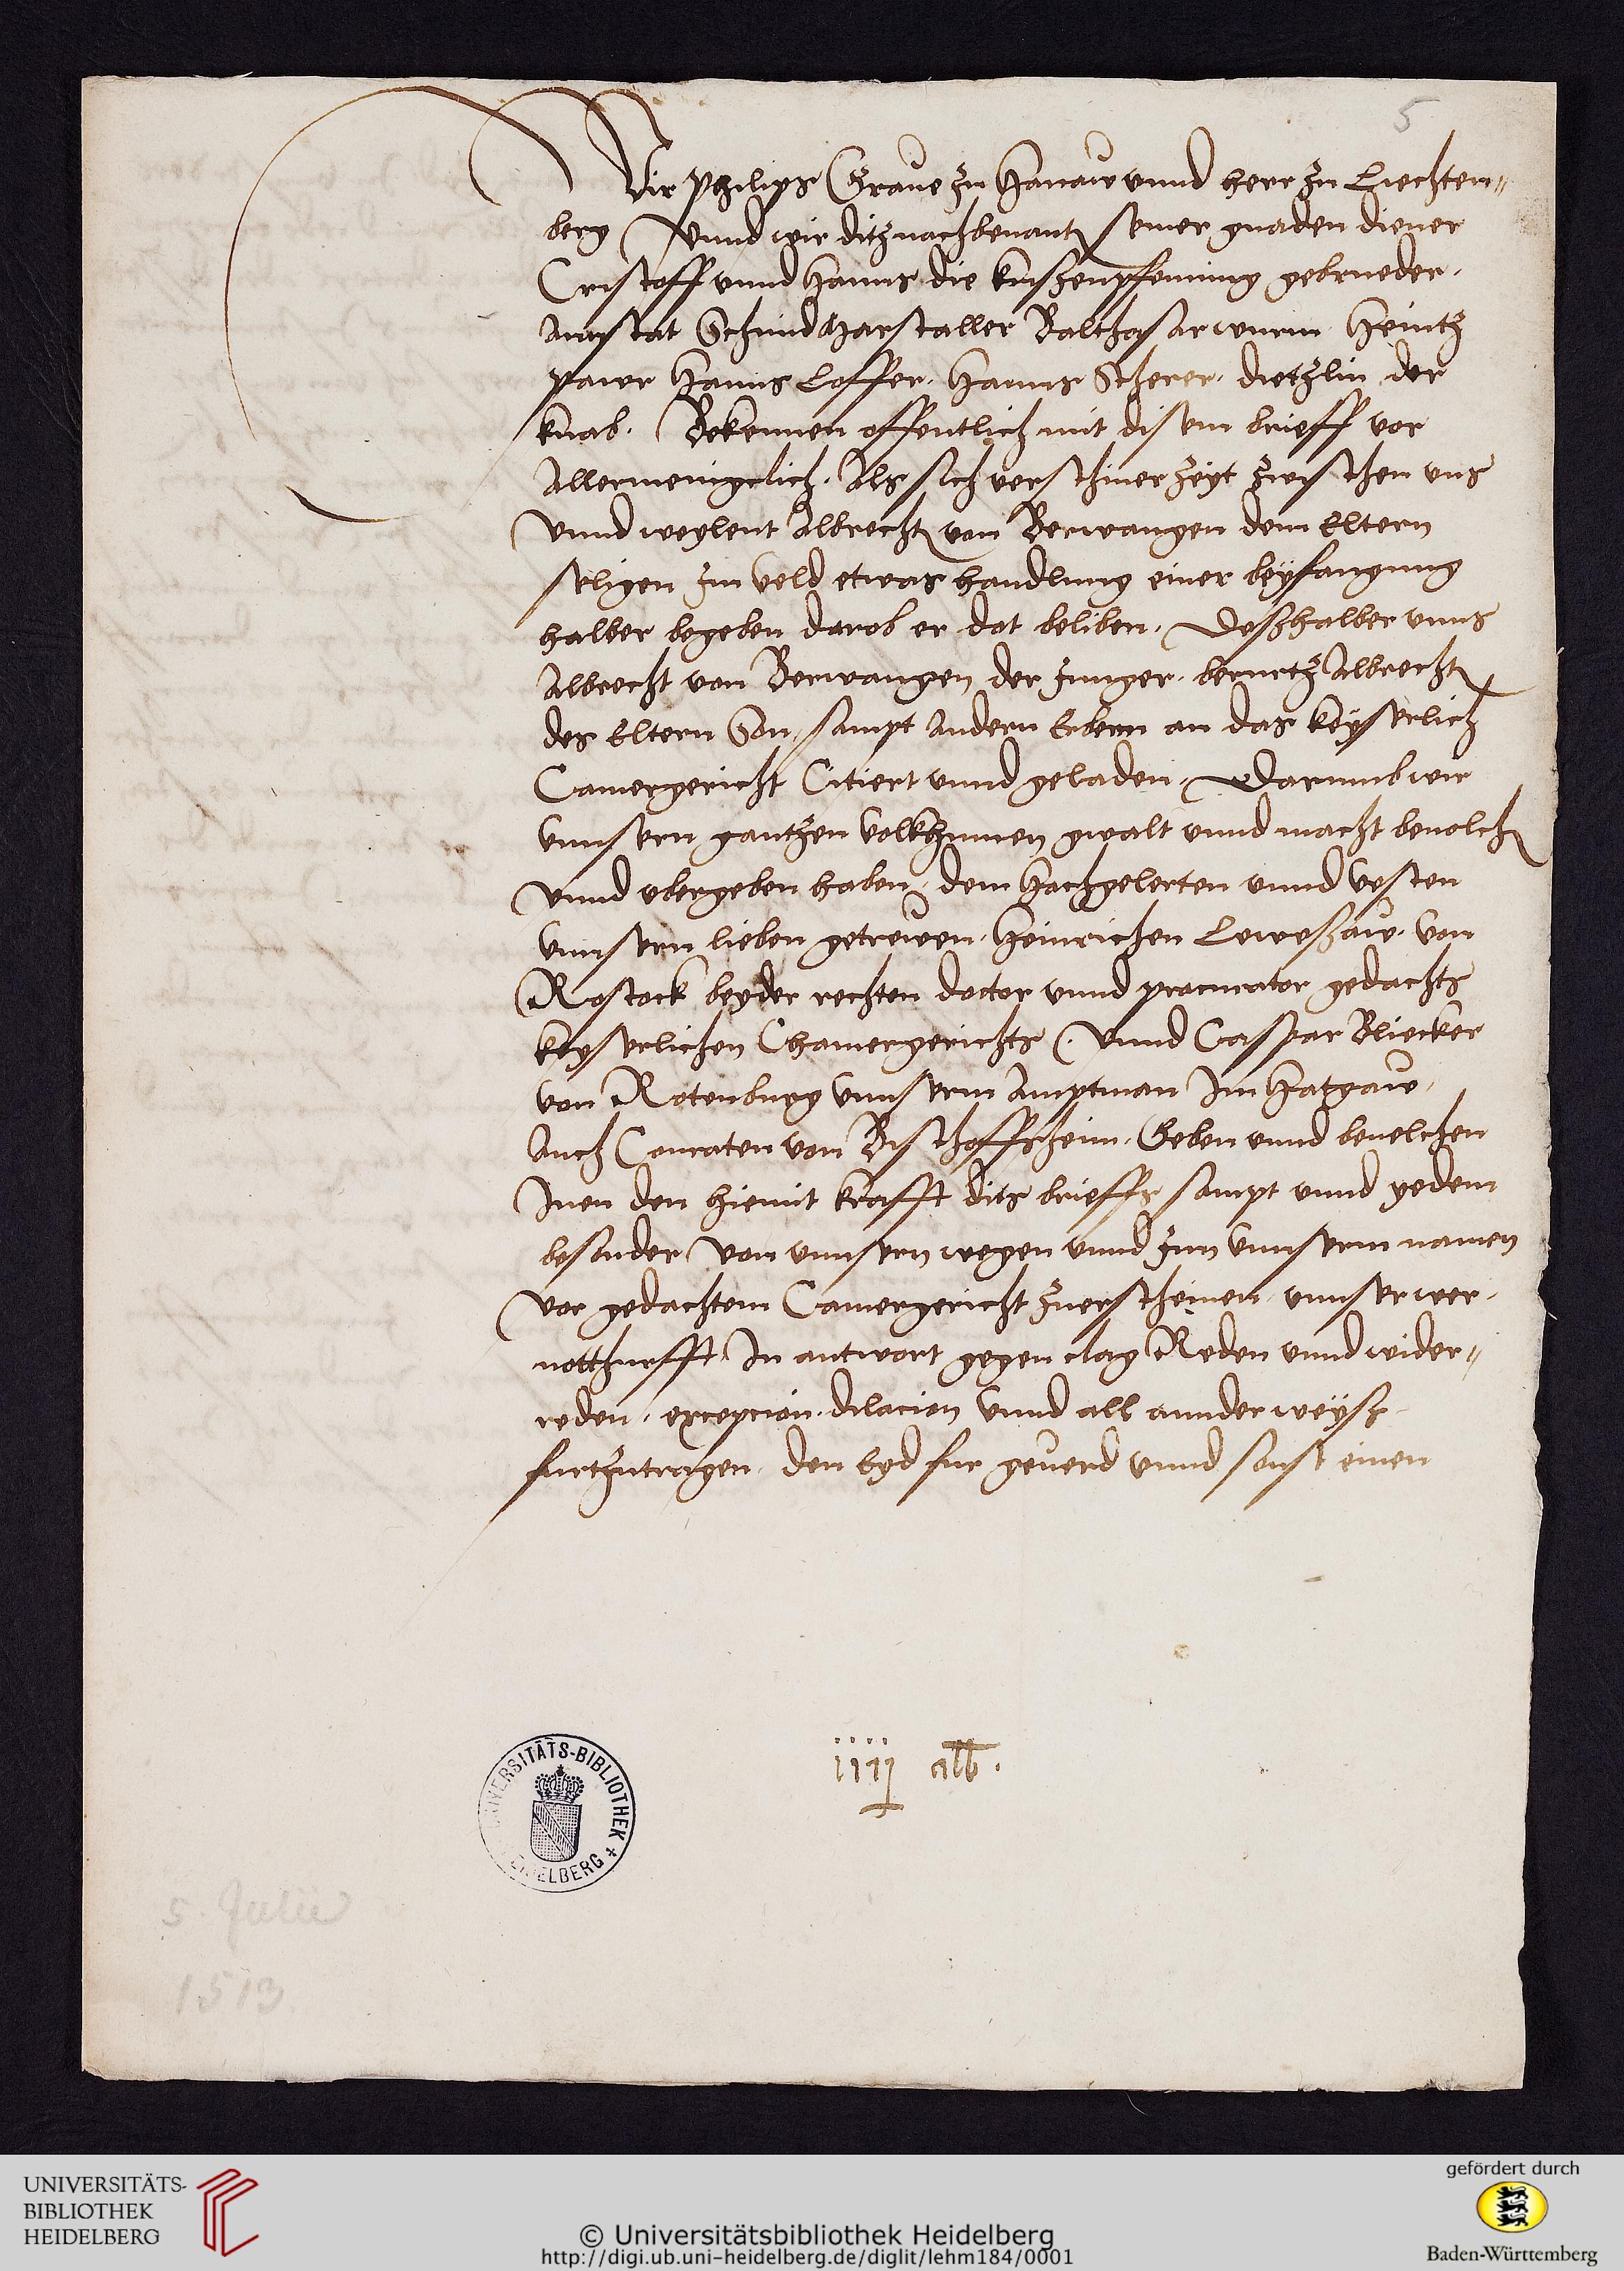 5
Wir Philips Graue zu Hanaw vnnd herr zu Liechtem¬
berg Vnnd wir ditz nachbenant seiner gnaden diener
Cristoff vnnd Hanns die kuszenpfenning gebrueder.
Anstat Schmid Marstaller Balthasar wurm Heintz
pawr Hanns Loffer. Hanns Scherer. dietzlin der
knab. Bekennen offentlich mit disem brieff vor
Allermenigclich. Als sich verschiner zeyt zwischen vns
Vnnd weylent Albrecht von Berwangen dem Eltern
seligen Im veld etwas handlung einer beyfangung
halber begeben darob er dot beliben. Deszhalber vnns
Albrecht von Berwangen der Junger. berurtz Albrecht
des Eltern Son, sampt andern Erbenn an das keyserlich
Camergericht Citiert vnnd geladen. Darumb wir
vnnsern gantzen volkhumen gwalt vnnd macht beuolch
Vnnd vbergeben haben, dem Hochgelerten vnnd vesten
vnnsern lieben getrewen. Heinrichen Leweszaw. von
Rostock beyder rechten doctor vnnd procurator gedachts
keyserlichen Chamergerichts. Vnnd Caspar Bliecker
von Rotenburg vnnserm Amptman Im Hatgaw.
Auch Conraten von Bischoffsheim. Geben vnnd beuelchen
Inen den hiemit krafft dits brieffs sampt vnnd yedem
besonder von vnnsern wegen vnnd Inn vnnserm namen
Vor gedachtem Camergericht zuerscheinen, vnnser wer.
notthurfft In antwort gegen clag Reden vnnd wider¬
reden. excepcion. dilacion Vnnd all annder weysz
furtzutragen. den Eyd fur geuerd vnnd sonst einen
iiij alb.
UNIVERSITÄTS-BIBLIOTHEK HEIDELBERG
5. Julii
1513
UNIVERSITÄTS-
BIBLIOTHEK
HEIDELBERG
© Universitätsbibliothek Heidelberg
http://digi.ub.uni-heidelberg.de/diglit/lehm184/0001
gefördert durch
Baden-Württemberg